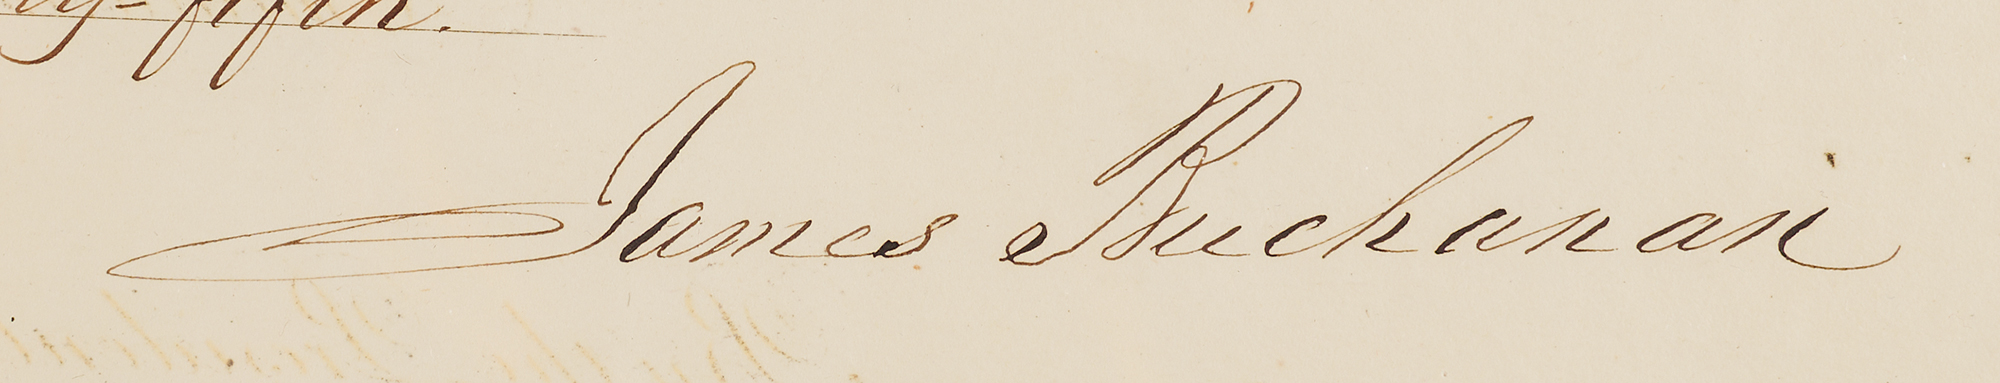 ty-fifth.
James Buchanan